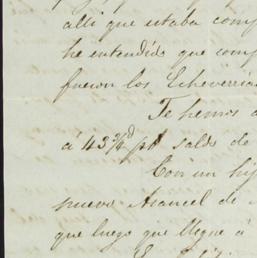 alli que estaba comp
he entendido que comp
fueron los Echeverria
Te hemos
á 43 3/4 d p% saldo de
Con un hij
nuevo Arancel de
que luego que llegue á